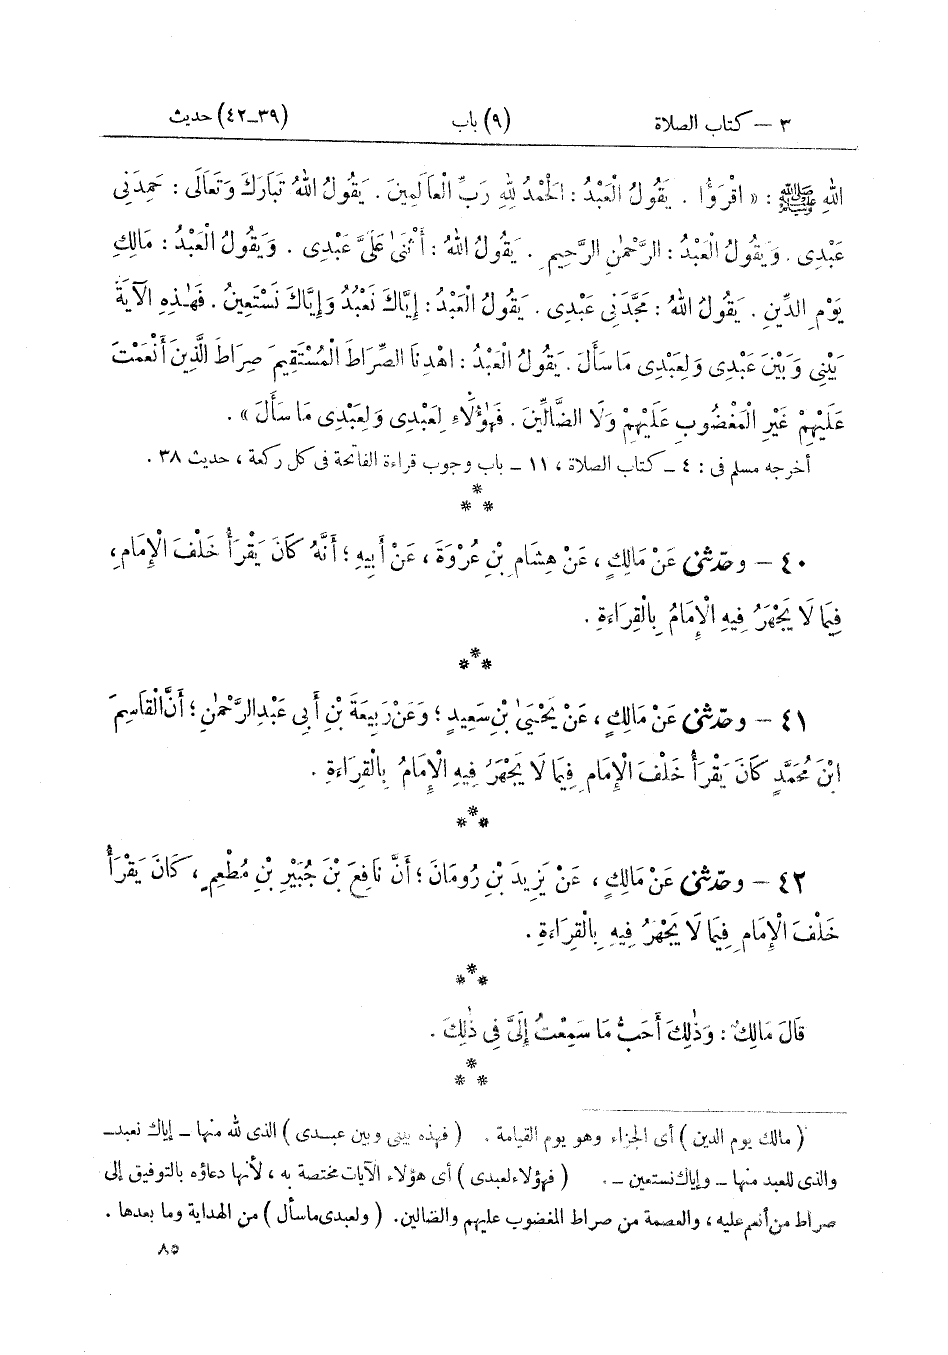 ٣ – كتاب الصلاة (٩) باب (٣٩-٤٢) حديث
اللهِ ﷺ : « اقْرَؤُا . يَقُولُ الْعَبْدُ : الْحَمْدُ لِلهِ رَبِّ الْعَالَمِينَ . يَقُولُ اللهُ تَبَارَكَ وَتَعَالَى : حَمِدَنِى
عَبْدِى . وَيَقُولُ الْعَبْدُ : الرَّحْمٰنِ الرَّحِيمِ . يَقُولُ اللهُ : أَثْنَى عَلَىَّ عَبْدِى . وَيَقُولُ الْعَبْدُ : مَالِكِ
يَوْمِ الدِّينِ . يَقُولُ اللهُ : مَجَّدَنِى عَبْدِى . يَقُولُ الْعَبْدُ : إِيَّاكَ نَعْبُدُ وَإِيَّاكَ نَسْتَعِينُ . فَهٰذِهِ الآيَةُ
بَيْنِى وَبَيْنَ عَبْدِى وَلِعَبْدِى مَا سَأَلَ . يَقُولُ الْعَبْدُ : اهْدِنَا الصِّرَاطَ الْمُسْتَقِيمَ صِرَاطَ الَّذِينَ أَنْعَمْتَ
عَلَيْهِمْ غَيْرِ الْمَغْضُوبِ عَلَيْهِمْ وَلَا الضَّالِّينَ . فَهٰؤُلَاءِ لِعَبْدِى وَلِعَبْدِى مَا سَأَلَ » .
أخرجه مسلم فى : ٤ – كتاب الصلاة ، ١١ – باب وجوب قراءة الفاتحة فى كل ركعة ، حديث ٣٨ .
*
* *
٤٠ – وحدّثنى عَنْ مَالِكٍ ، عَنْ هِشَامِ بْنِ عُرْوَةَ ، عَنْ أَبِيهِ ؛ أَنَّهُ كَانَ يَقْرَأُ خَلْفَ الْإِمَامِ ،
فِيمَا لَا يَجْهَرُ فِيهِ الْإِمَامُ بِالْقِرَاءَةِ .
*
* *
٤١ – وحدّثنى عَنْ مَالِكٍ ، عَنْ يَحْيَىٰ بْنِ سَعِيدٍ ؛ وَعَنْ رَبِيعَةَ بْنِ أَبِى عَبْدِ الرَّحْمٰنِ ؛ أَنَّ الْقَاسِمَ
ابْنَ مُحَمَّدٍ كَانَ يَقْرَأُ خَلْفَ الْإِمَامِ فِيمَا لَا يَجْهَرُ فِيهِ الْإِمَامُ بِالْقِرَاءَةِ .
*
* *
٤٢ – وحدّثنى عَنْ مَالِكٍ ، عَنْ يَزِيدَ بْنِ رُومَانَ ؛ أَنَّ نَافِعَ بْنَ جُبَيْرِ بْنِ مُطْعِمٍ ، كَانَ يَقْرَأُ
خَلْفَ الْإِمَامِ فِيمَا لَا يَجْهَرُ فِيهِ بِالْقِرَاءَةِ .
*
* *
قَالَ مَالِكٌ : وَذٰلِكَ أَحَبُّ مَا سَمِعْتُ إِلَىَّ فِى ذٰلِكَ .
*
* *
( مالك يوم الدين ) أى الجزاء وهو يوم القيامة . ( فهذه بينى وبين عبدى ) الذى لله منها – إياك نعبد –
والذى للعبد منها – وإياك نستعين – . ( فهؤلاء لعبدى ) أى هؤلاء الآيات مختصة به ، لأنها دعاؤه بالتوفيق إلى
صراط من أنعم عليه ، والعصمة من صراط المغضوب عليهم والضالين . ( ولعبدى ما سأل ) من الهداية وما بعدها .
٨٥